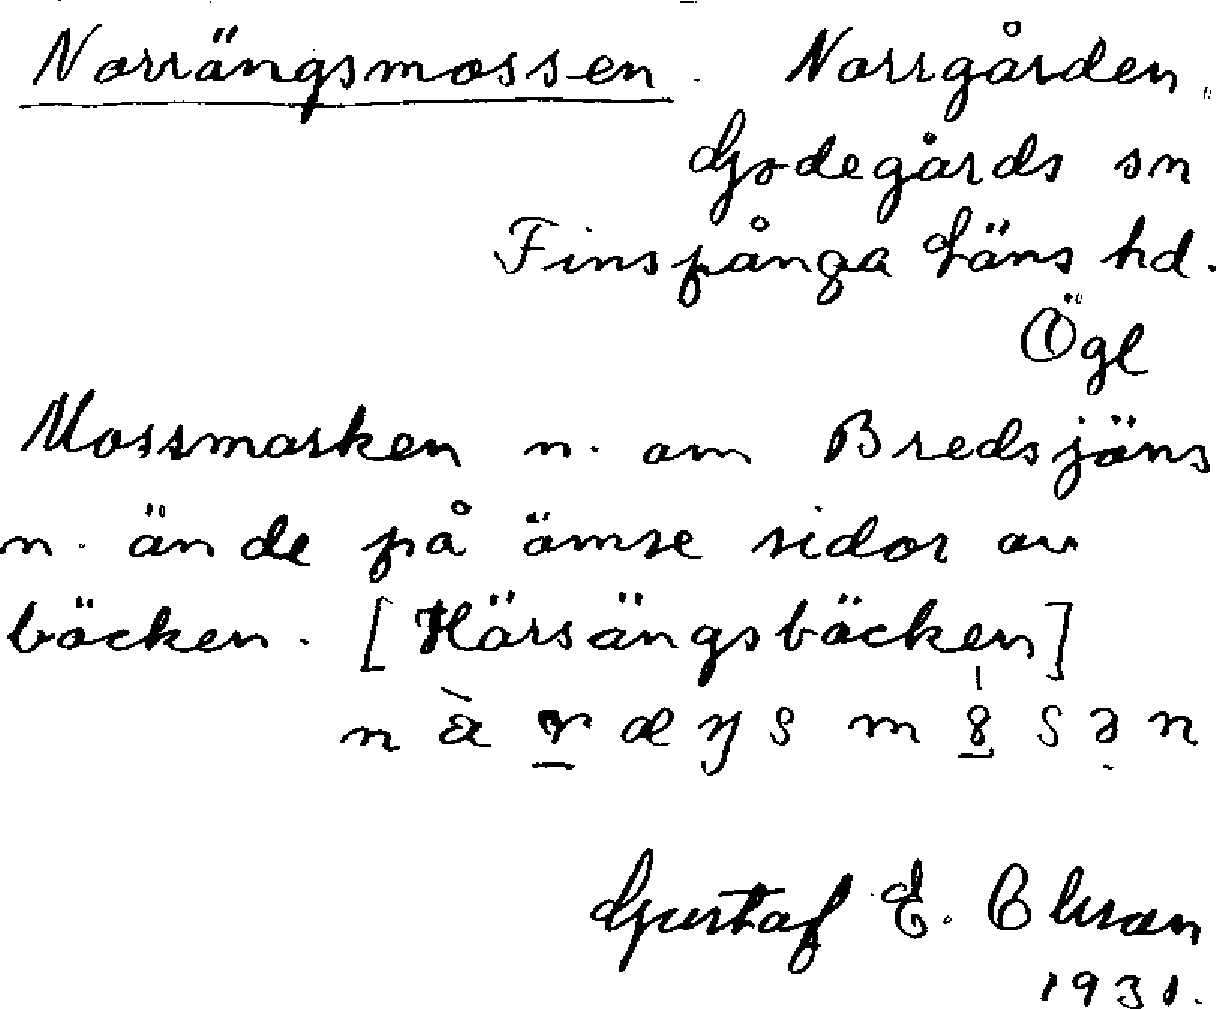 Norrängsmossen. Norrgården
Godegårds sn
Finspånga läns hd.
Ögl
Mossmarken n. om Bredsjöns
n. ände på ömse sidor av
bäcken. [Härsängsbäcken]
Gustaf E. Olsson
1931.